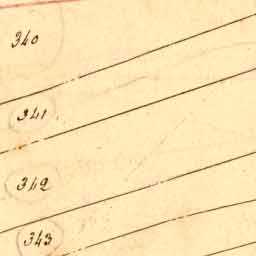 340
341
342
343